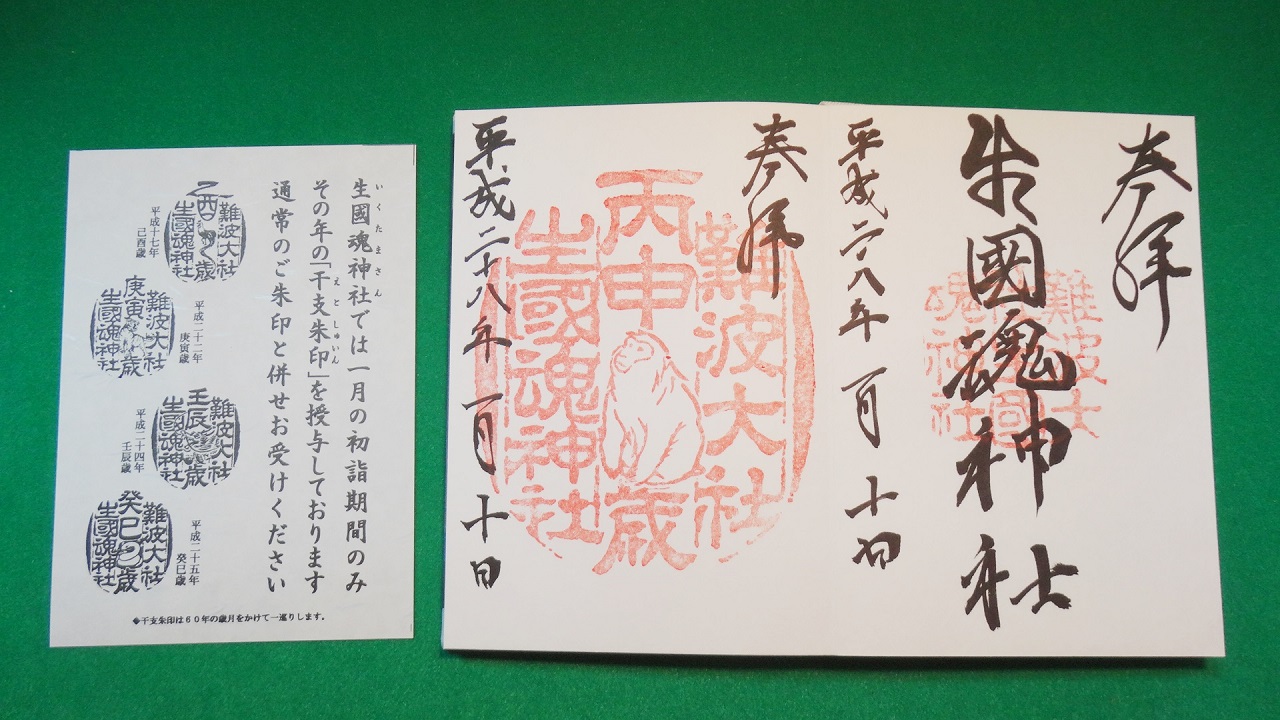 生國魂神社では一月の初詣期間のみ
いくたまさん
その年の「干支朱印」を授与しております
えとしゅいん
通常のご朱印と併せお受けください
難波大社
乙酉歳
生國魂神社
平成十七年
己酉歳
平成二十二年
庚寅歳
難波大社
庚寅歳
生國魂神社
難波大社
壬辰歳
生國魂神社
平成二十四年
壬辰歳
平成二十五年
癸巳歳
難波大社
癸巳歳
生國魂神社
◆干支朱印は60年の歳月をかけて一巡りします。
奉拝
生國魂神社
難波大社
生國魂神社
平成二八年 一月 十日
奉拝
難波大社
丙申歳
生國魂神社
平成二十八年 一月 十日